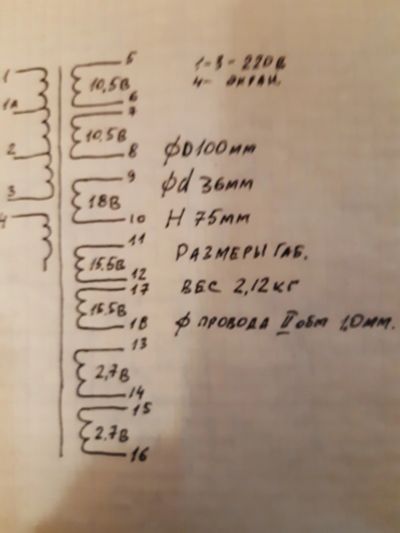 1
1А
2
3
4
5
10,5В
6
7
10,5В
8
9
18В
10
11
15,5В
12
17
15,5В
18
13
2,7В
14
15
2.7В
16
1-3 = 220В
4- ЭКРАН.
ФD100мм
Фd 36мм
Н 75мм
РАЗМЕРЫ ГАБ.
ВЕС 2,12кг
Ф ПРОВОДА II обм 1,0мм.